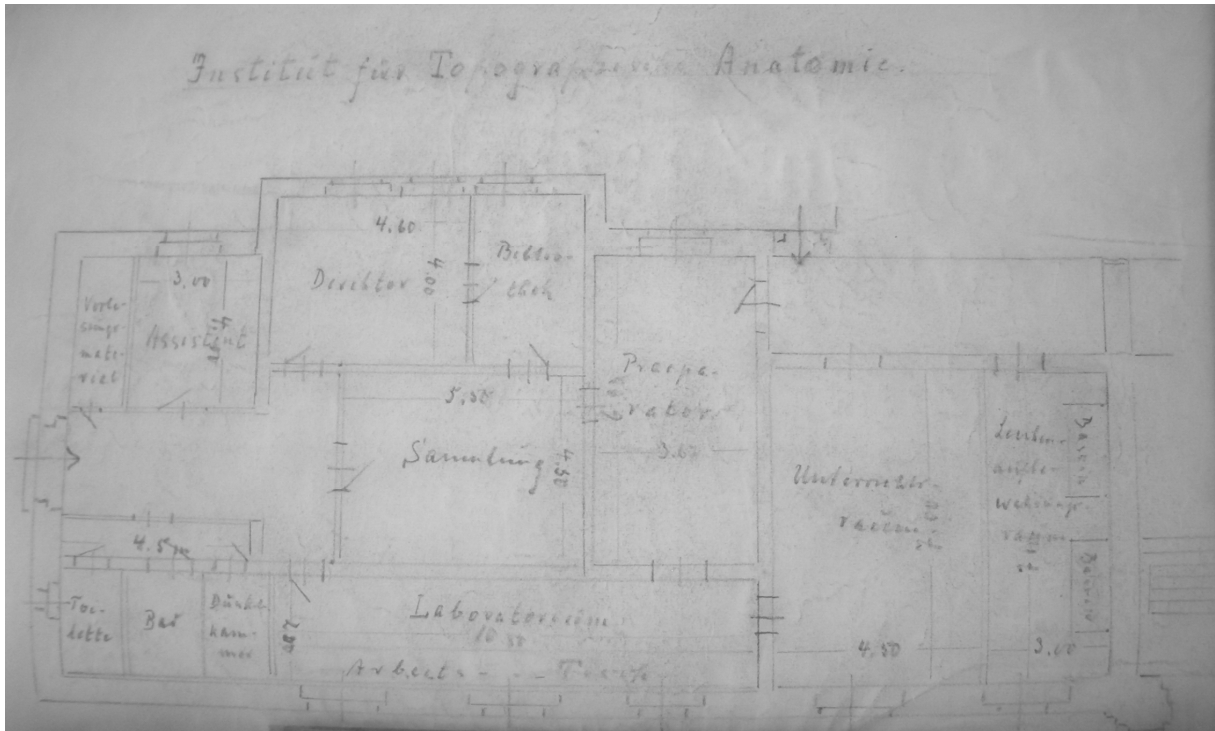 Institut für Topographische Anatomie.
4.60
Direktor
4.00
Biblio-
thek
3.00
Assistent
Vorle-
sungs-
mate-
rial
5.50
Sammlung
4.50
Praepa-
rator
3.60
Unterrichts-
raum
4.50
Leichen-
aufbe-
wahrungs-
raum
Bassin
Bassin
3.00
4.5
Toi-
lette
Bad
Dunkel-
kam-
mer
Laboratorium
10.50
Arbeits - - - Tisch